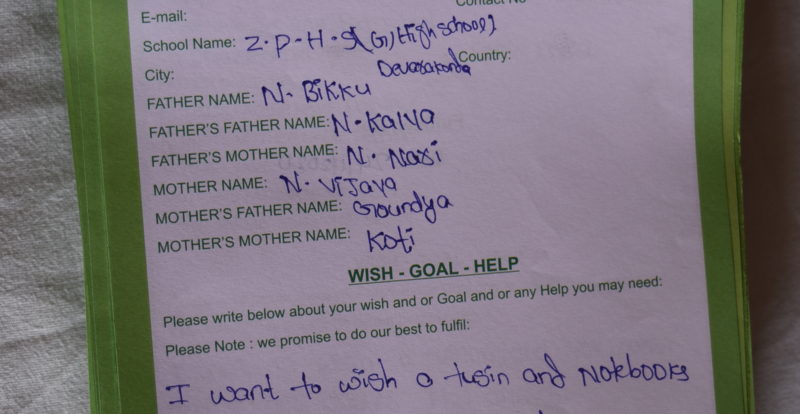 Contact No
E-mail:
School Name: Z.P.H.S (G) High school)
City: Devarakonda Country:
FATHER NAME: N. Bikku
FATHER'S FATHER NAME: N. Kalya
FATHER'S MOTHER NAME: N. Nasi
MOTHER NAME: N. Vijaya
MOTHER'S FATHER NAME: Goundya
MOTHER'S MOTHER NAME: Koti
WISH - GOAL - HELP
Please write below about your wish and or Goal and or any Help you may need:
Please Note : we promise to do our best to fulfil:
I want to wish a and NOtebOOKs